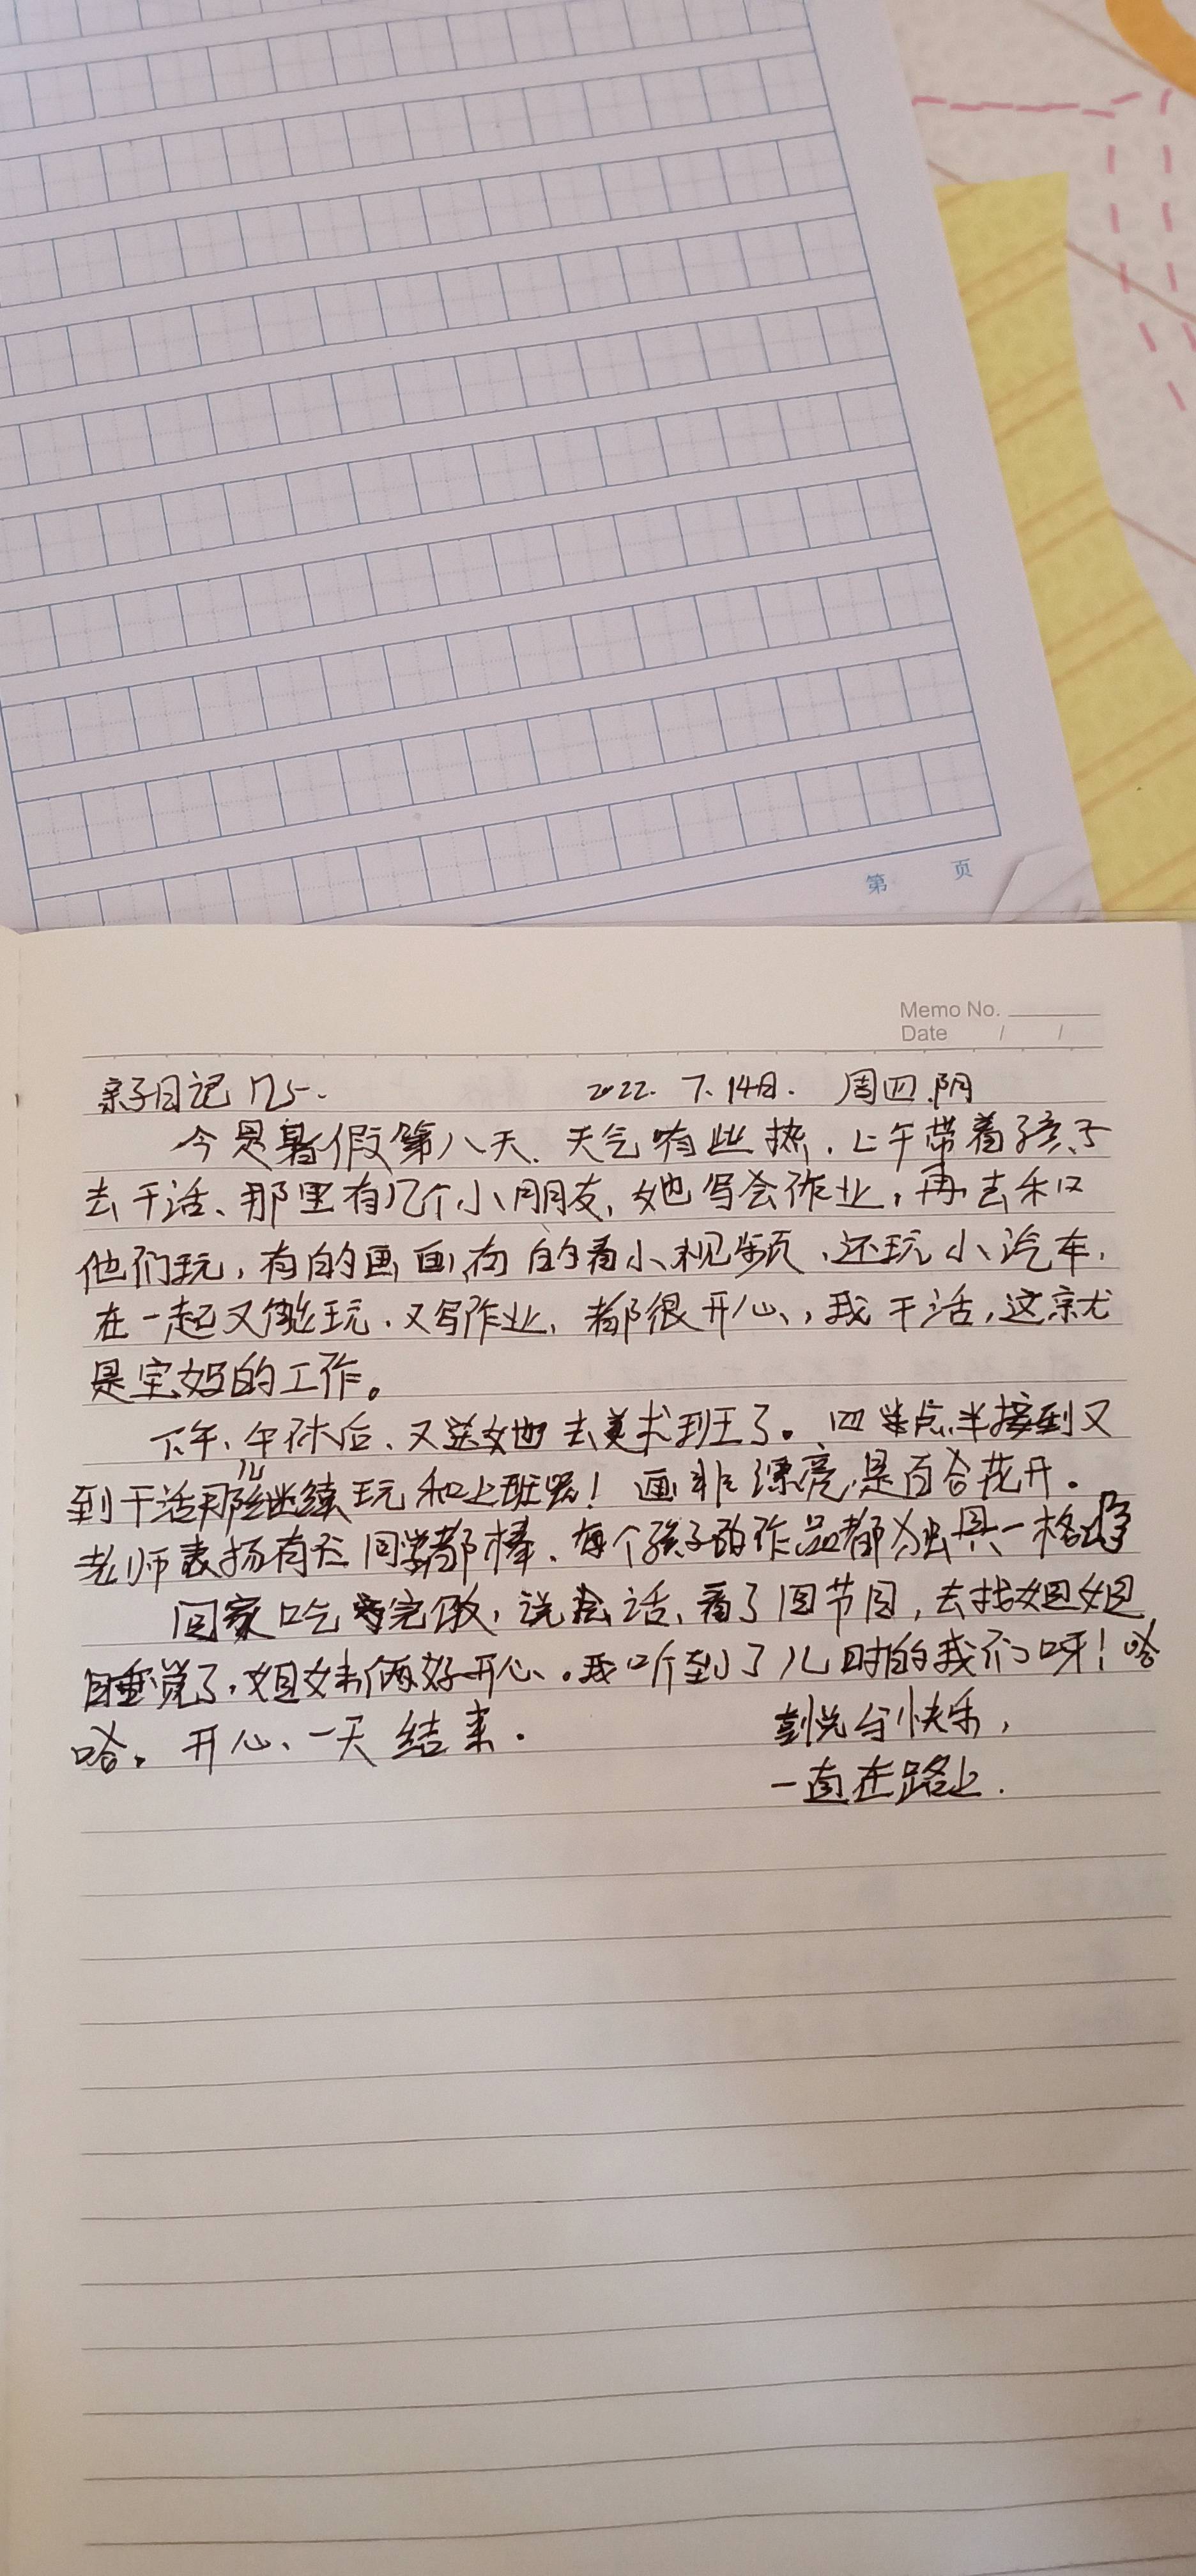 第 页
Memo No.
Date / /
亲子日记 175. 2022. 7. 14日. 周四.阴
今是暑假第八天、天气有些热.上午带着孩子
去干活、那里有几个小朋友,她写会作业,再去和
他们玩,有的画画,有的看小视频、还玩小汽车,
在一起又能玩、又写作业、都很开心,我干活,这就
是宝妈的工作。
下午、午休后、又送她去美术班了。四点半接到又
到干活那儿继续玩和上班啰!画非漂亮,是百合花开。
老师表扬有天同学都棒、每个孩子的作品都独具一格
回家吃完饭,说会话、看了回节目,去找姐姐
睡觉了,姐妹俩好开心。我听到了儿时的我们呀!哈
哈。开心、一天结束.
快乐,
一直在路上.